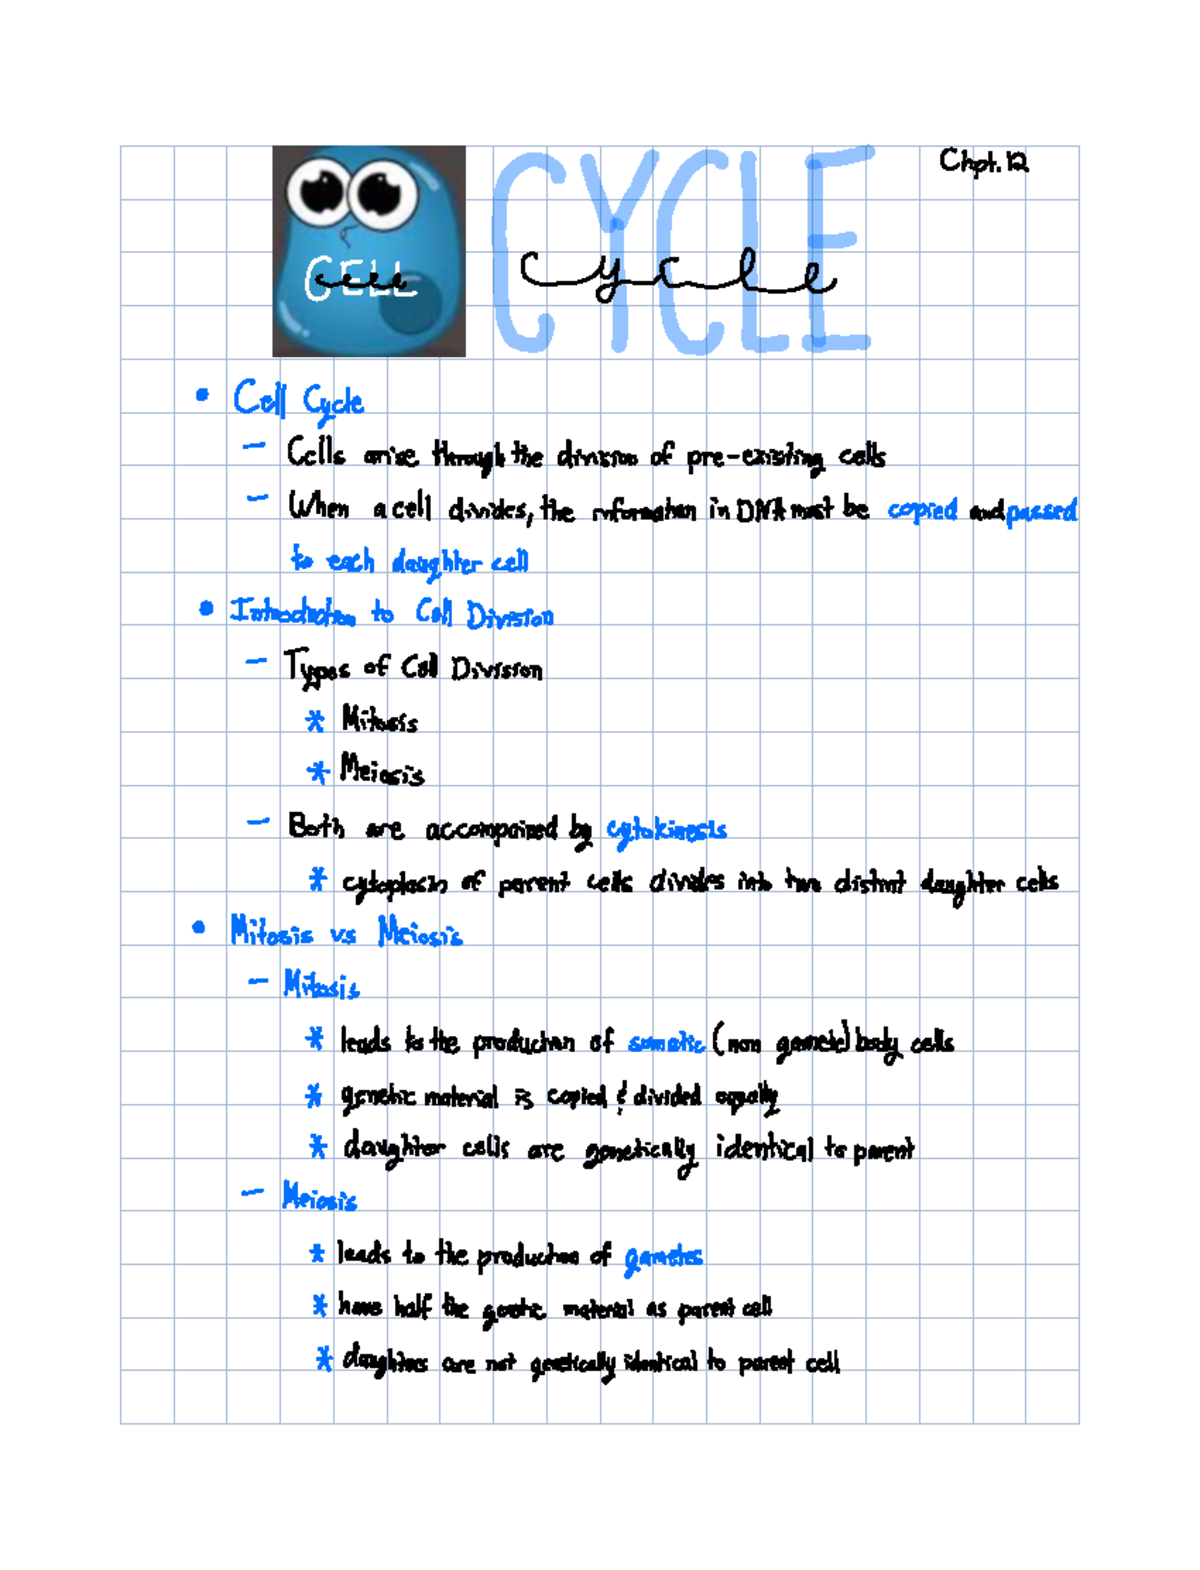 Chpt. 12
CELL
cell
CYCLE
cycle
• Cell Cycle
— Cells arise through the division of pre-existing cells
— When a cell divides, the information in DNA must be copied and passed
to each daughter cell
• Introduction to Cell Division
— Types of Cell Division
* Mitosis
* Meiosis
— Both are accompained by cytokinesis
* cytoplasm of parent cells divides into two distinct daughter cells
• Mitosis vs Meiosis
— Mitosis
* leads to the production of somatic (non gamete) body cells
* genetic material is copied & divided equally
* daughter cells are genetically identical to parent
— Meiosis
* leads to the production of gametes
* have half the genetic material as parent cell
* daughters are not genetically identical to parent cell